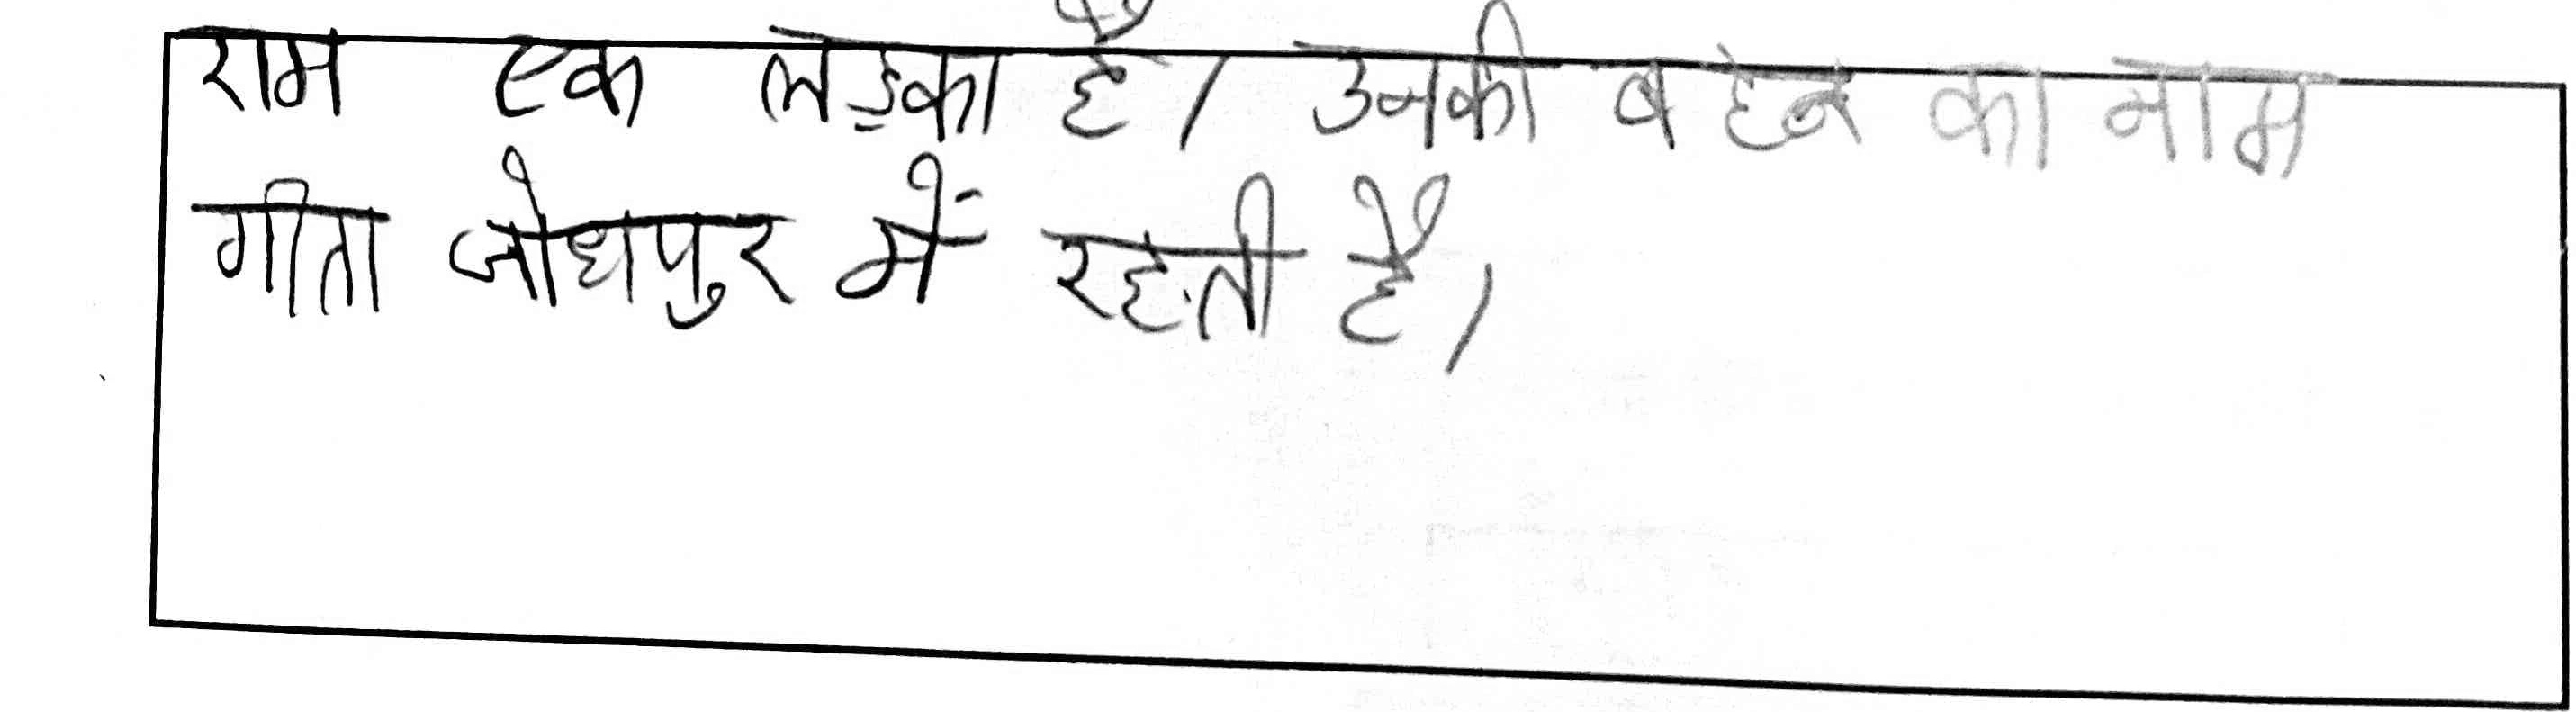 राम एक लड़का है। उनकी बहेन का नाम
गीता जोधपुर में रहती है।